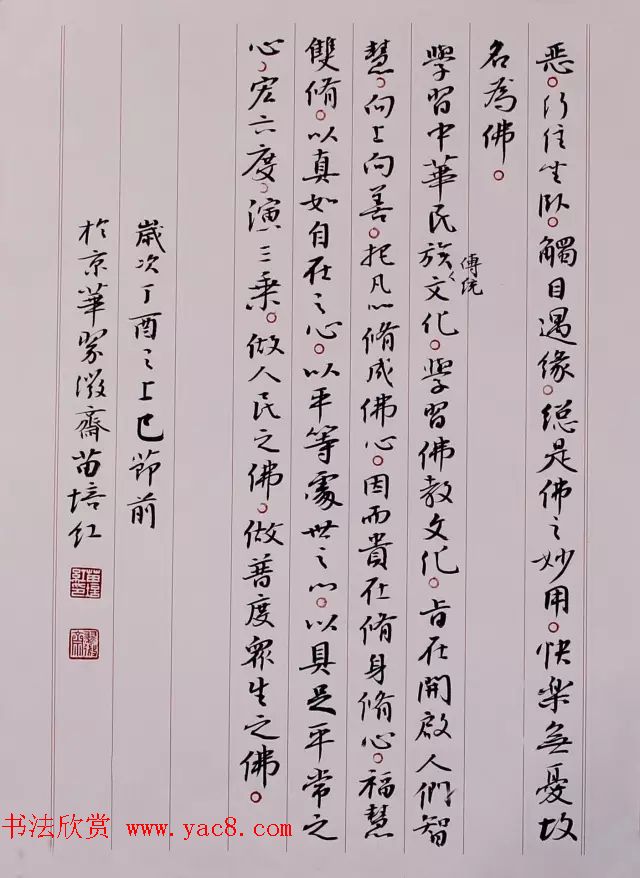 恶。行住坐卧。觸目遇缘。總是佛之妙用。快樂無憂故
名為佛。
學習中華民族傳统文化。學習佛教文化。旨在開啟人們智
慧。向上向善。把凡心脩成佛心。因而貴在脩身脩心。福慧
雙脩。以真如自在之心。以平等處世之心。以具足平常之
心。宏六度。演三乘。做人民之佛。做普度眾生之佛。
歲次丁酉之上巳節前
於京華翠微齋苗培红
书法欣赏 www.yac8.com